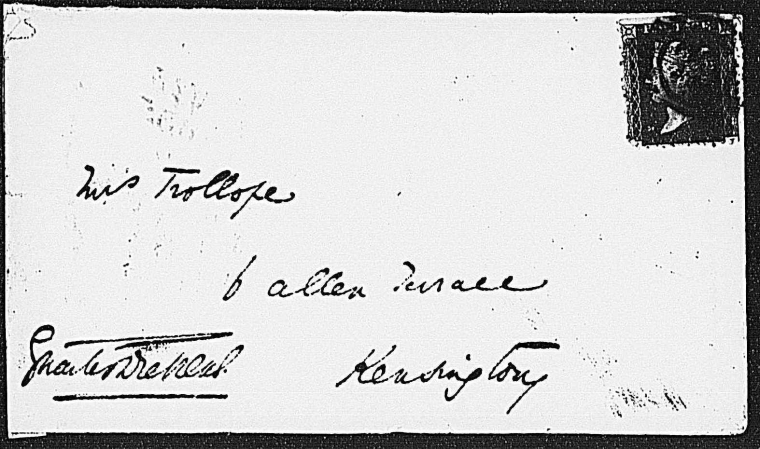 Mrs Trollope
6 allen Terrace
Kensington
Charles Dickens